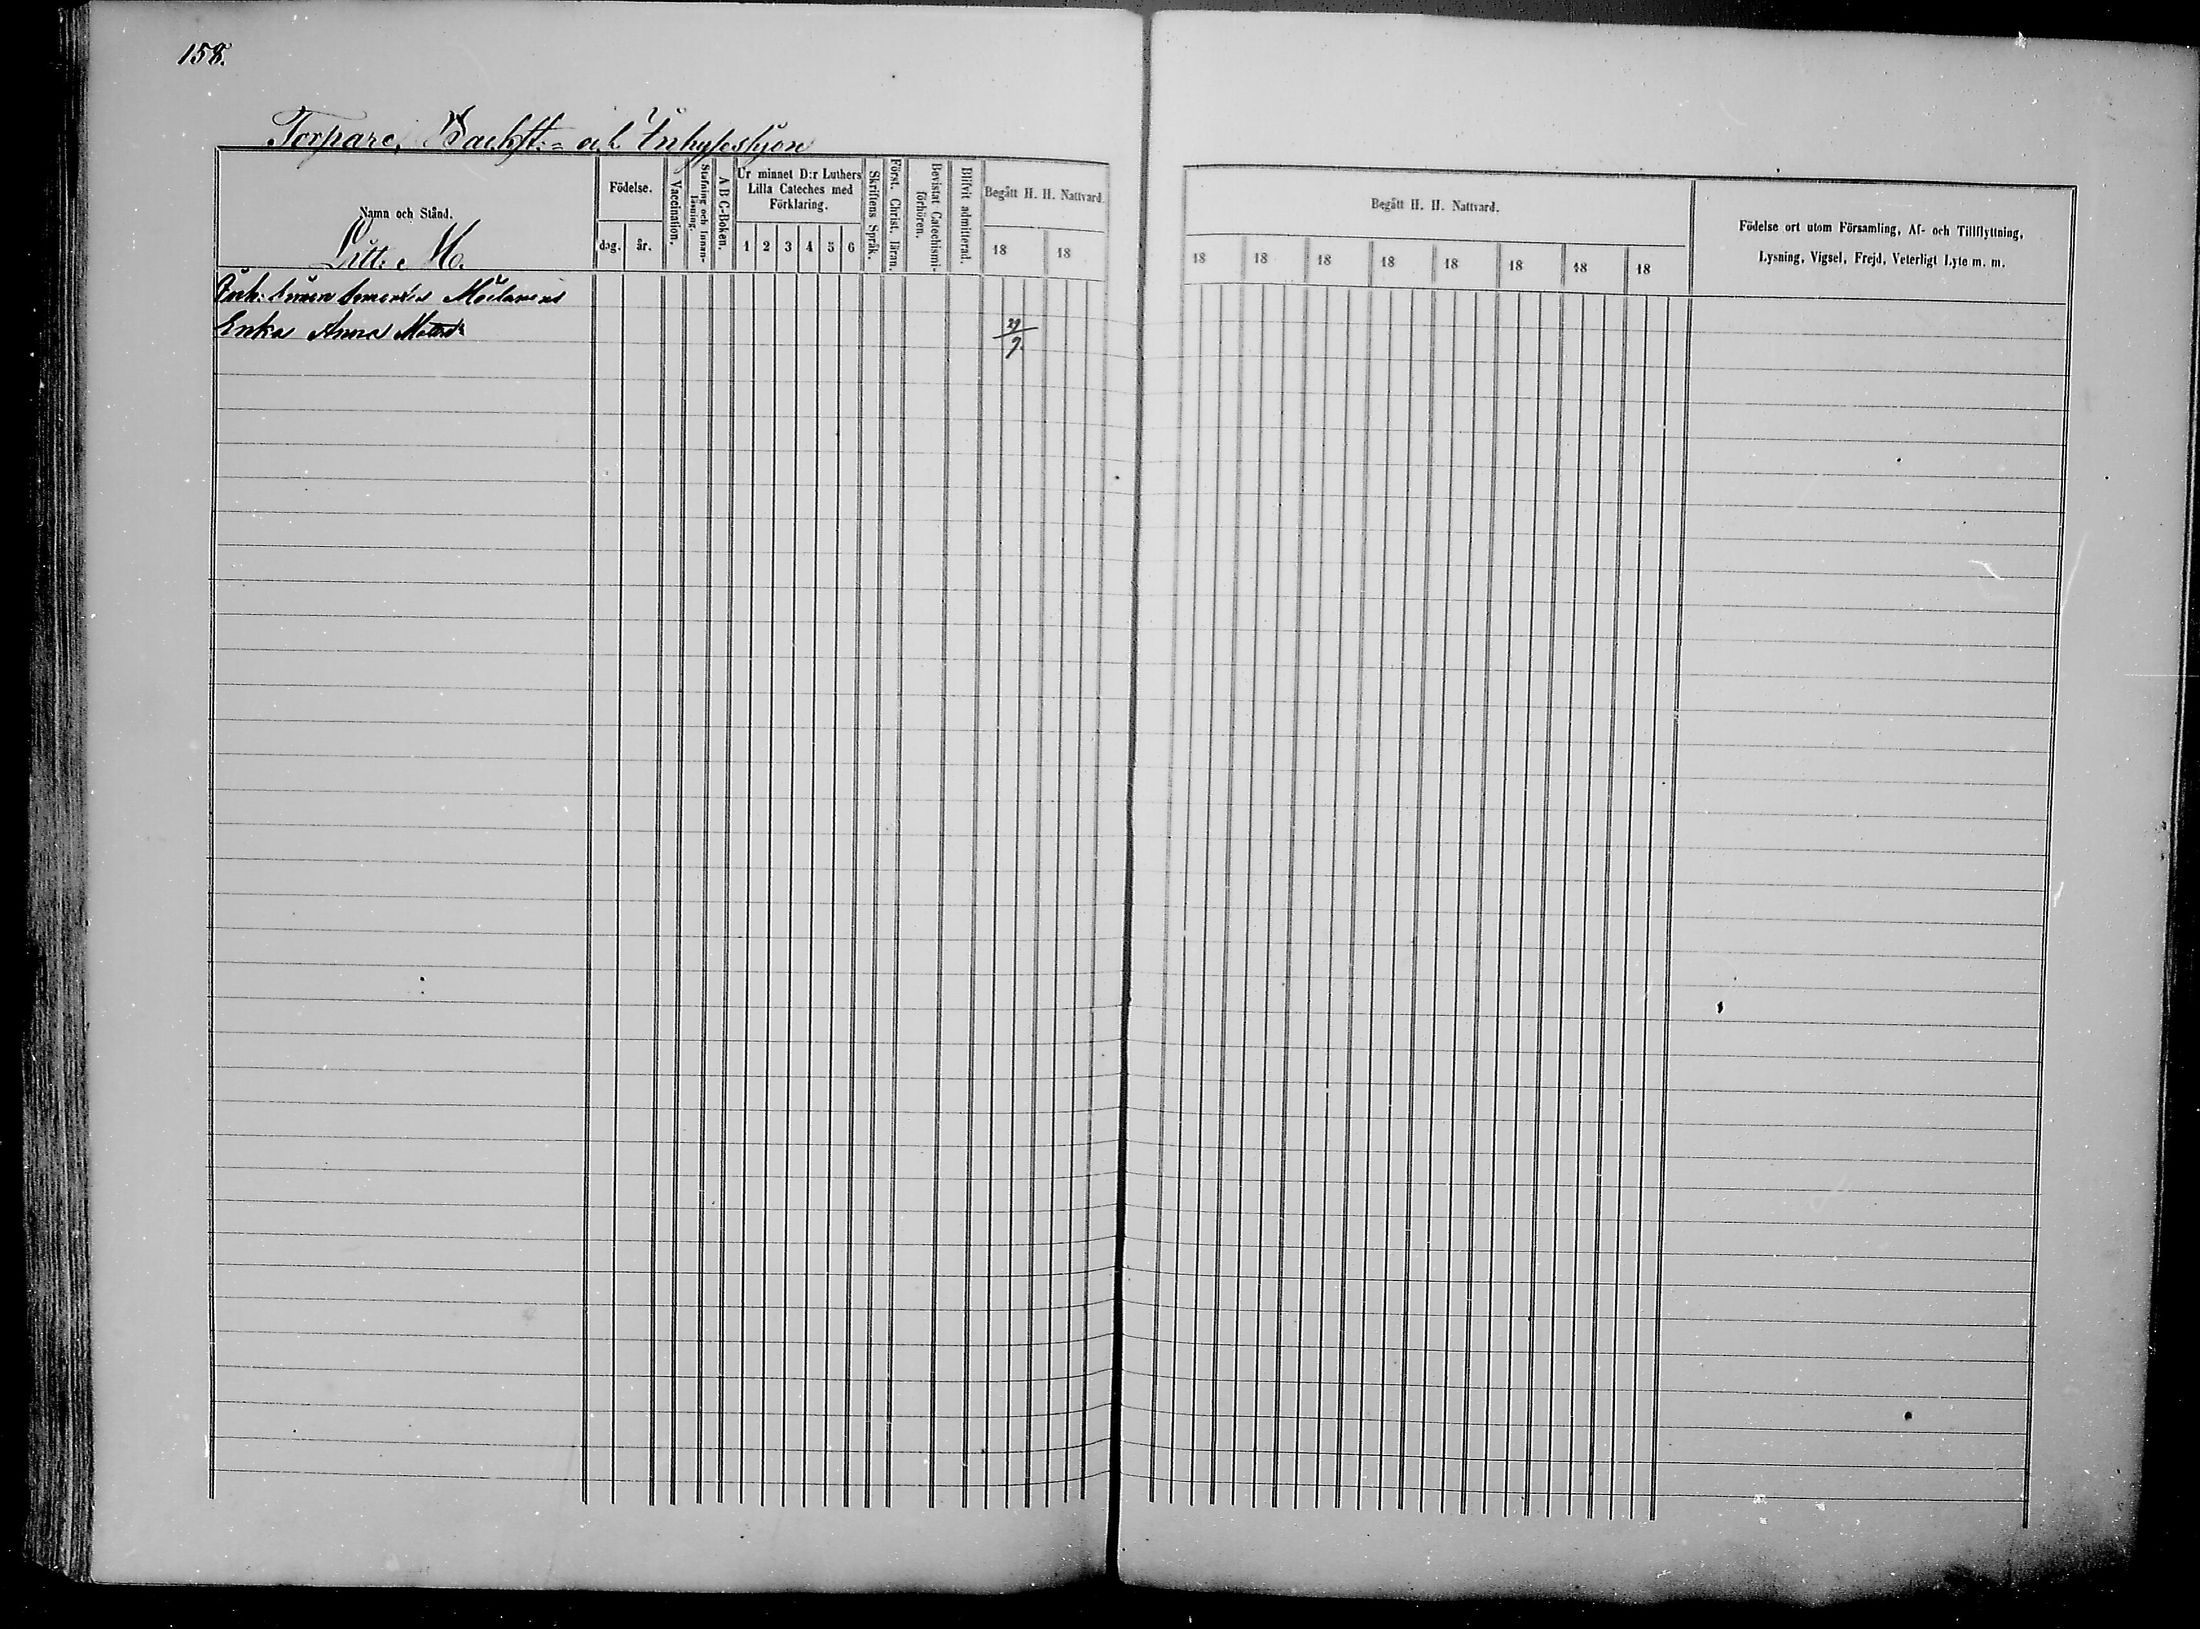 158.
Torpare, Backst.= och Inhyseshjon
Namn och Stånd.
Litt. M.
Födelse.
dag. år.
Vaccination.
Stafning och Innan-
läsning.
A B C-Boken.
Ur minnet D:r Luthers
Lilla Cateches med
Förklaring.
1 2 3 4 5 6
Skriftens Språk.
Först. Christ. läran.
Bevistat Catechismi-
förhören.
Blifvit admitterad.
Begått H. H. Nattvard.
18 18
Begått H. H. Nattvard.
18 18 18 18 18 18 18 18
Födelse ort utom Församling, Af- och Tillflyttning,
Lysning, Vigsel, Frejd, Veterligt Lyte m. m.
Enka Anna